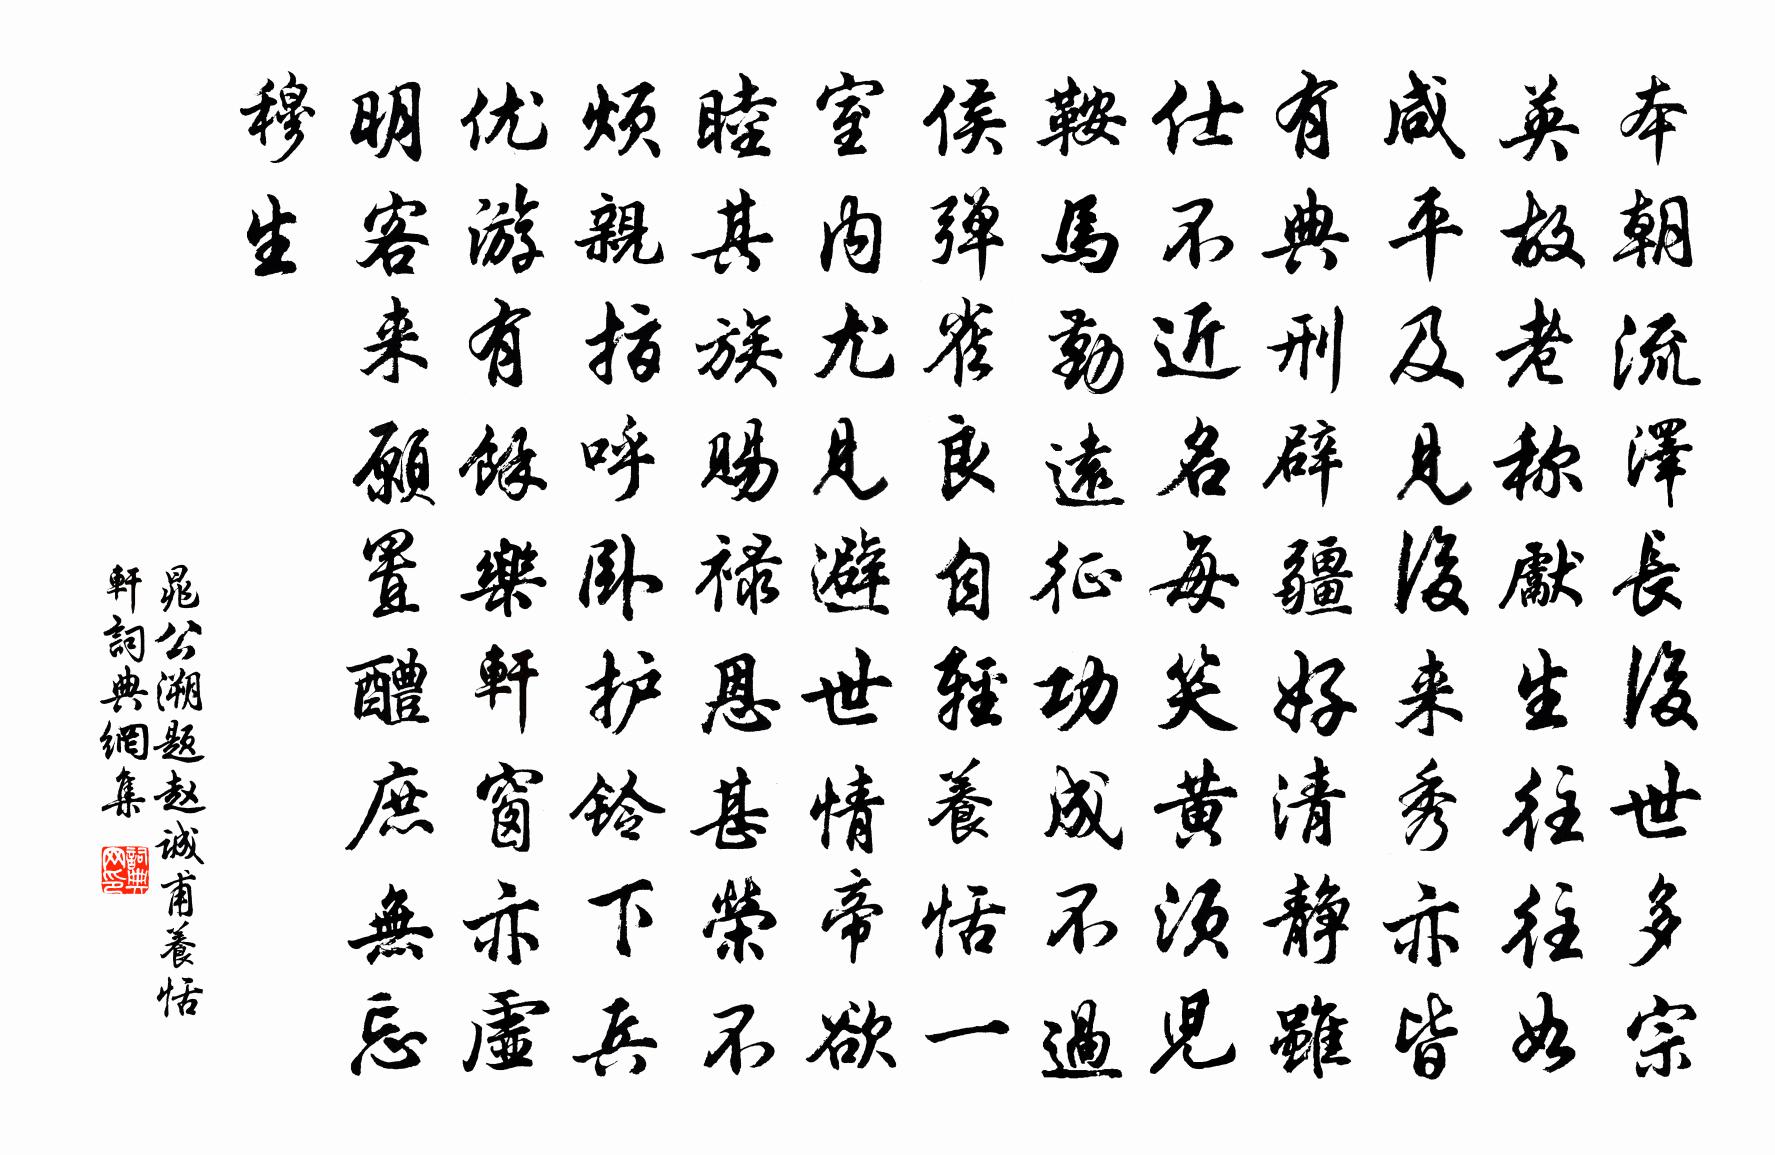 本朝流澤長後世多宗
英故老称獻生往往如
咸平及見後来秀亦皆
有典刑辟疆好清静雖
仕不近名每笑黄须児
鞍馬勤遠征功成不過
侯弹雀良自輕養恬一
室内尤見避世情帝欲
睦其族賜禄恩甚榮不
烦親指呼卧护鈴下兵
优游有餘樂軒窗亦虛
明客来願置醴庶無忘
穆生
晁公溯题赵诚甫養恬
軒詞典網集
詞典
网印